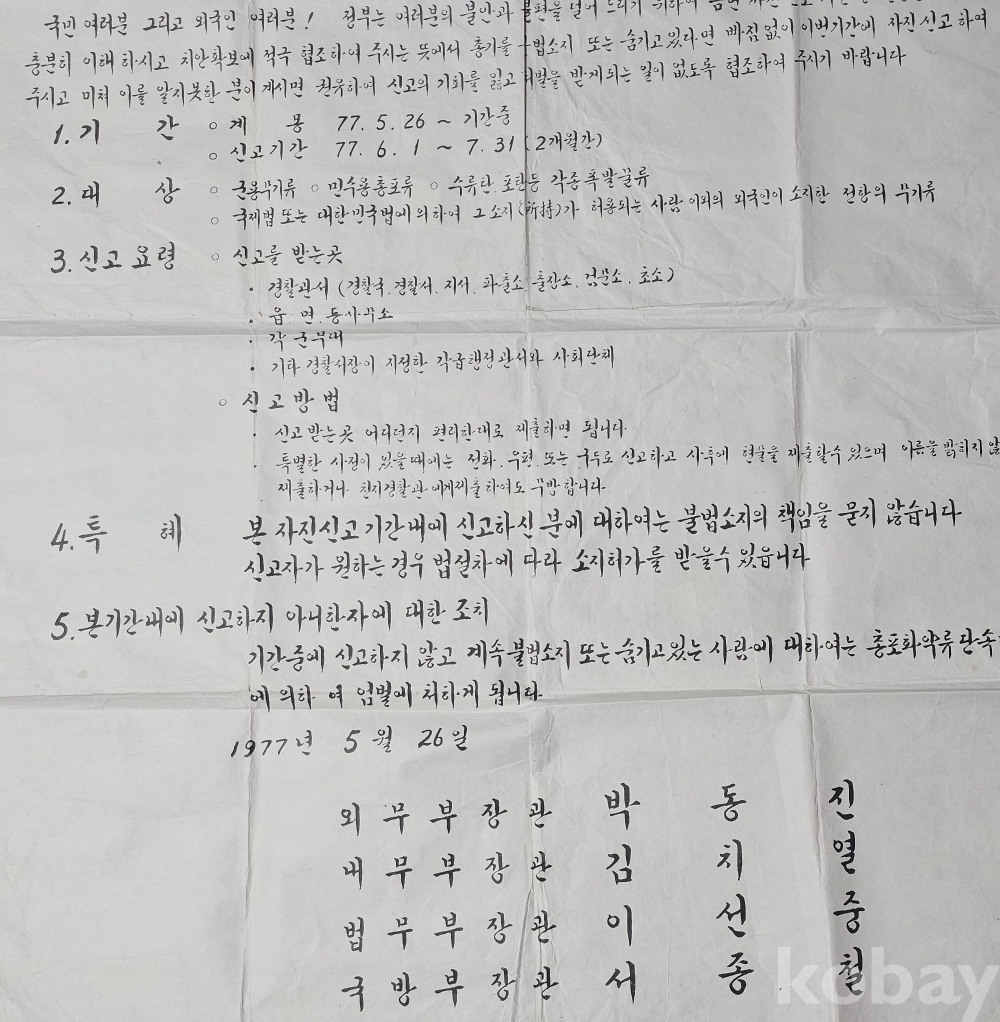 국민 여러분 그리고 외국인 여러분! 정부는 여러분의 불안과 불편을 덜어 드리기 위하여
충분히 이해 하시고 치안확보에 적극 협조하여 주시는 뜻에서 총기를 불법소지 또는 숨기고 있다면 빠짐없이 이번기간에 자진신고 하여
주시고 미쳐 이를 알지못한 분이 계시면 권유하여 신고의 기회를 잃고 처벌을 받게 되는 일이 없도록 협조하여 주시기 바랍니다
1. 기 간 ○ 계 몽 77. 5. 26 ~ 기간중
○ 신고기간 77. 6. 1 ~ 7. 31 (2개월간)
2. 대 상 ○ 군용무기류 ○ 민수용총포류 ○ 수류탄. 포탄등 각종폭발물류
○ 국제법 또는 대한민국법에 의하여 그 소지(所持)가 허용되는 사람 이외의 외국인이 소지한 전항의 무기류
3. 신고 요령 ○ 신고를 받는곳
• 경찰관서 (경찰국. 경찰서. 지서. 파출소. 출장소. 검문소. 초소)
• 읍. 면. 동사무소
• 각 군부대
• 기타 경찰서장이 지정한 각급행정관서와 사회단체
○ 신고 방법
• 신고 받는곳 어디던지 편리한대로 제출하면 됩니다.
• 특별한 사정이 있을때에는 전화. 우편. 또는 구두로 신고하고 사후에 현물을 제출할수 있으며 이름을 밝히지 않
제출하거나 친지경찰관에게 제출하여도 무방합니다.
4. 특 혜 본 자진신고 기간내에 신고하신 분에 대하여는 불법소지의 책임을 묻지 않습니다
신고자가 원하는 경우 법절차에 따라 소지허가를 받을수 있읍니다
5. 본기간내에 신고하지 아니한자에 대한 조치
기간중에 신고하지 않고 계속 불법소지 또는 숨기고 있는 사람에 대하여는 총포화약류 단속
에 의하 여 엄벌에 처하게 됩니다.
1977년 5월 26일
외 무 부 장 관 박 동 진
내 무 부 장 관 김 치 열
법 무 부 장 관 이 선 중
국 방 부 장 관 서 종 철
kobay